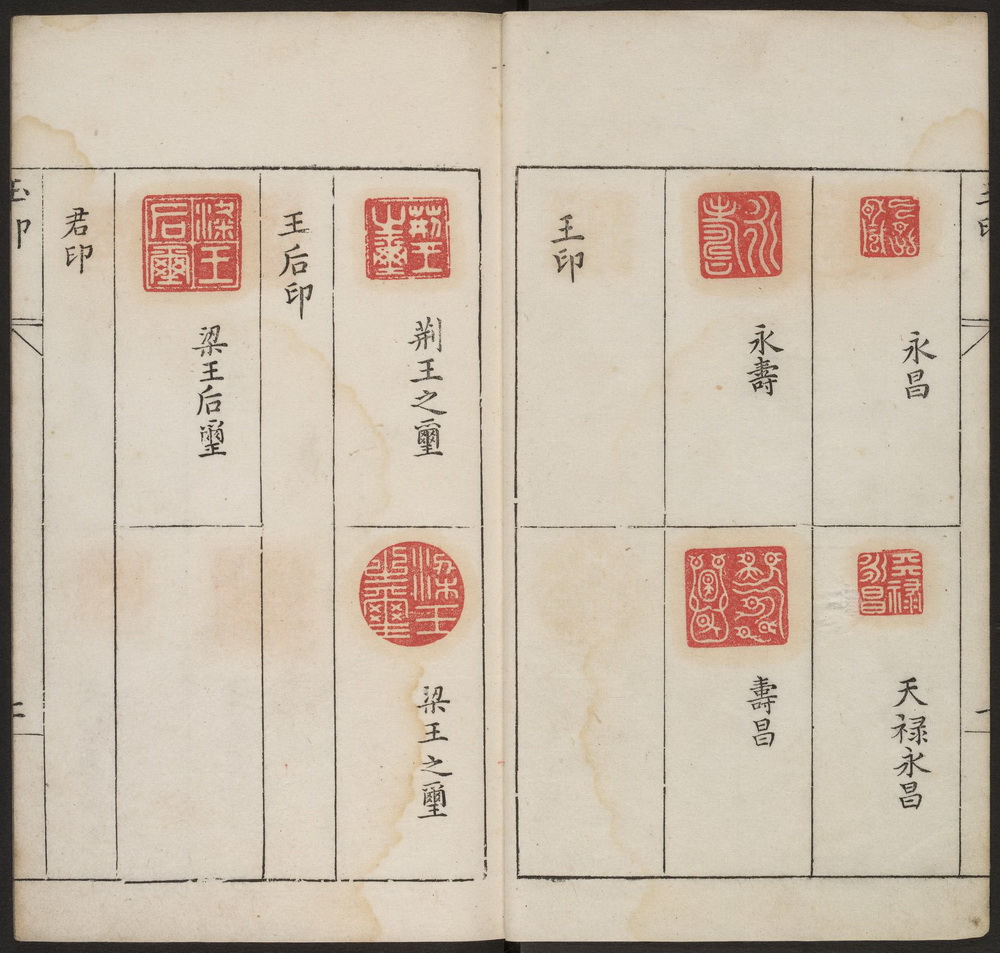 永昌
天祿永昌
永壽
壽昌
王印
荆王之璽
梁王之璽
王后印
梁王后璽
君印
玉印